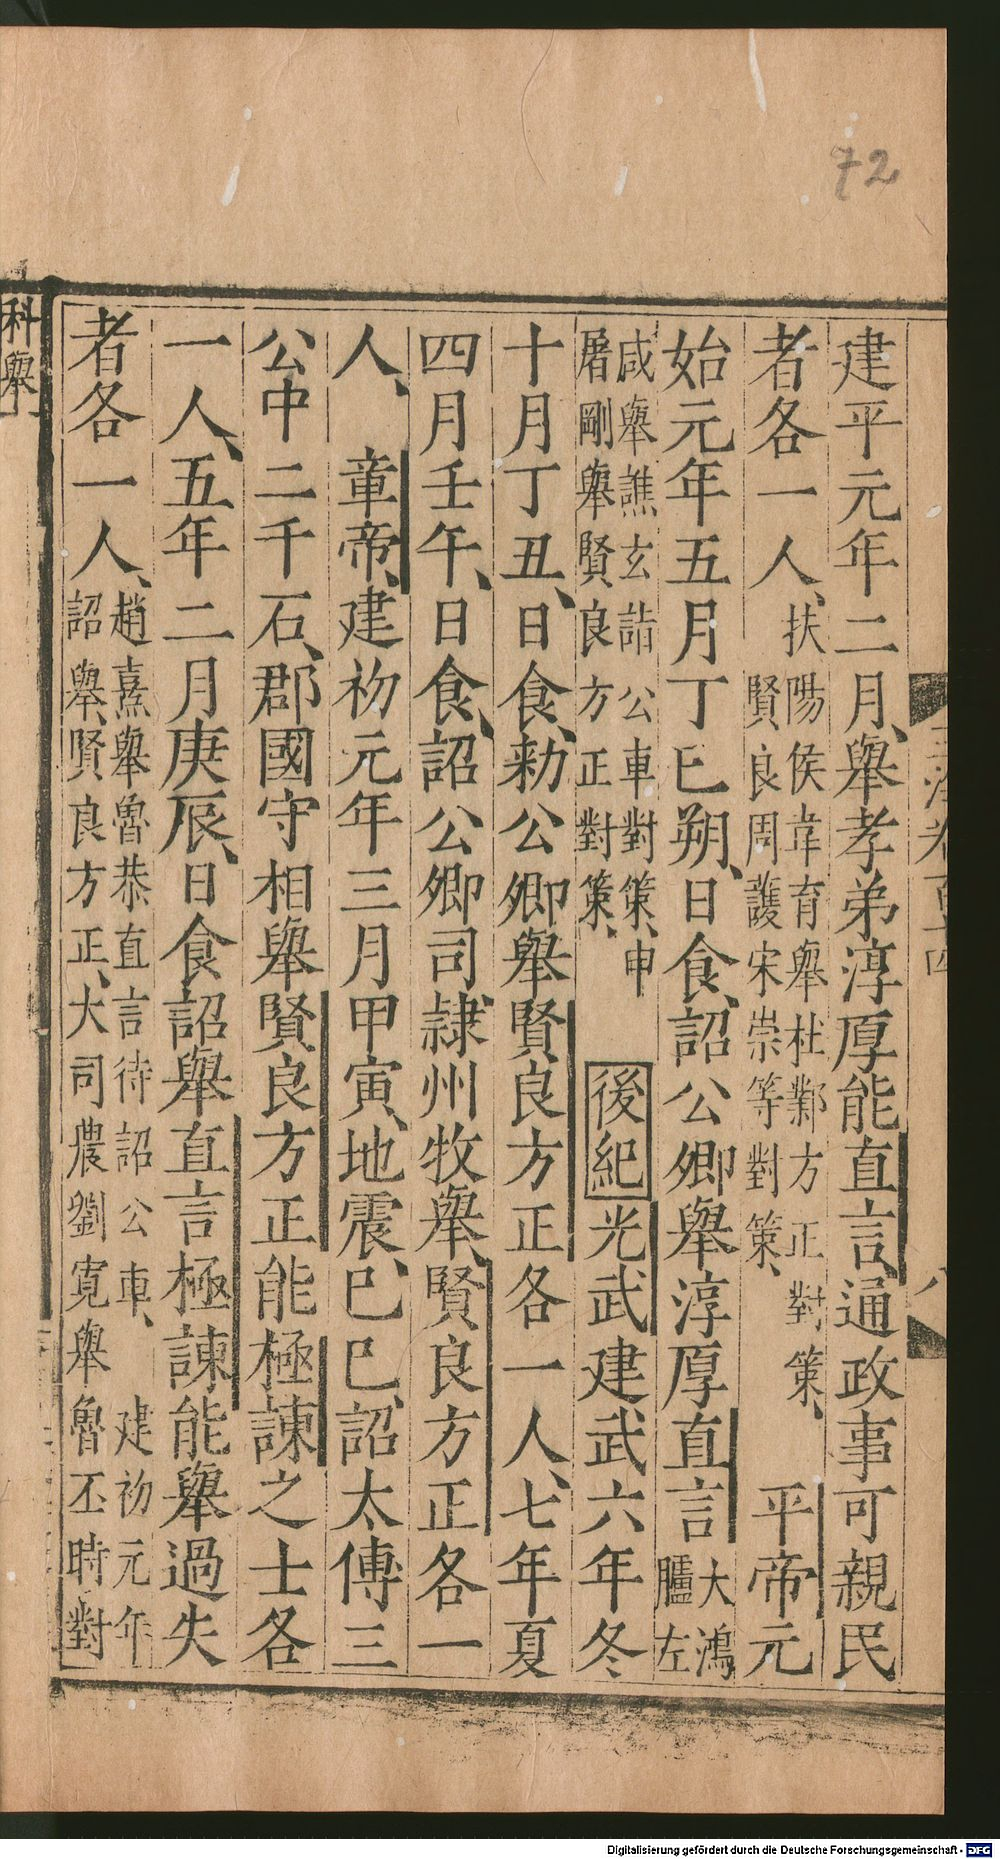 72
建平元年二月、舉孝弟淳厚能直言通政事可親民
者各一人、扶陽侯韋育舉杜鄴方正對策、
賢良周護宋崇等對策、平帝元
始元年五月丁巳朔、日食、詔公卿舉淳厚直言大鴻
臚左
咸舉譙玄詣公車對策、申
屠剛舉賢良方正對策、後紀光武建武六年冬
十月丁丑、日食、勑公卿舉賢良方正各一人、七年夏
四月壬午、日食、詔公卿司隷州牧舉、賢良方正各一
人、章帝、建初元年三月甲寅、地震、巳巳、詔太傅三
公中二千石、郡國守相舉賢良方正能極諫之士各
一人、五年二月庚辰、日食詔舉直言極諫能舉過失
者各一人、趙憙舉魯恭直言待詔公車、建初元年
詔舉、賢良方正、大司農劉寬舉魯丕時對
科舉一
Digitalisierung gefördert durch die Deutsche Forschungsgemeinschaft - DFG